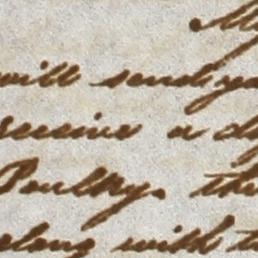 My
will send yo
receive a d
Poultry. th
along with t